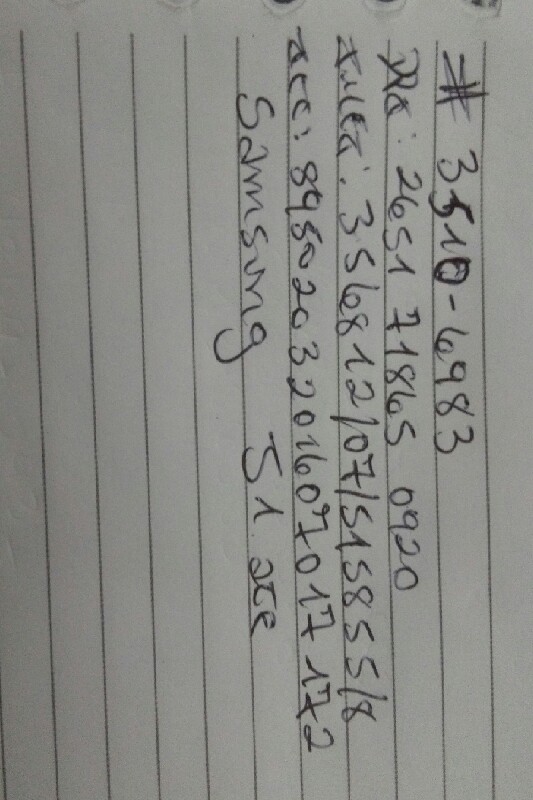 # 3510-6983
DPI: 2651 71865 0920
IMEI: 356812/07/515855/8
ICC: 8950203201607017172
Samsung J1 ace